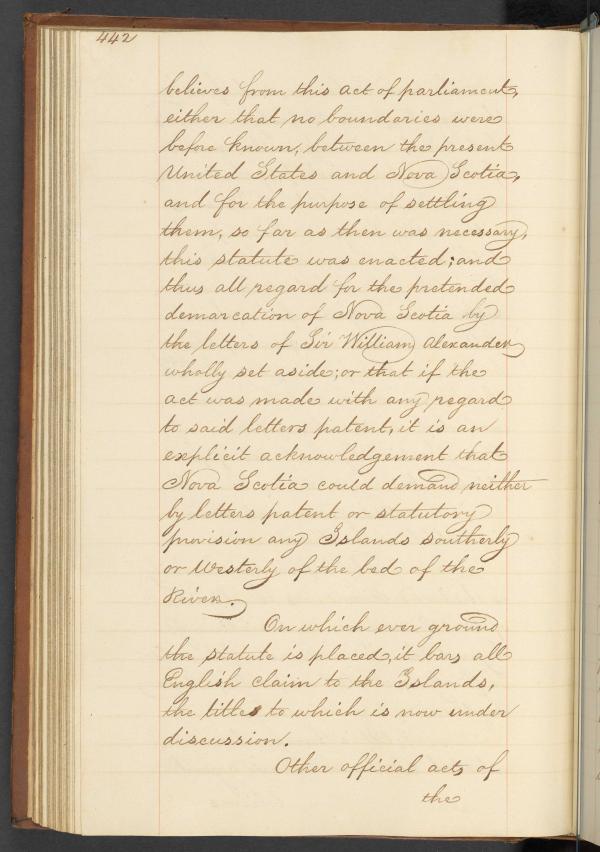 442
believes from this act of parliament,
either that no boundaries were
before known, between the present
United States and Nova Scotia,
and for the purpose of settling
them, so far as then was necessary,
this statute was enacted; and
thus all regard for the pretended
demarcation of Nova Scotia by
the letters of Sir William Alexander
wholly set aside; or that if the
act was made with any regard
to said letters patent, it is an
explicit acknowledgement that
Nova Scotia could demand neither
by letters patent or statutory
provision any Islands southerly
or Westerly of the bed of the
River.
On which ever ground
the statute is placed, it bars all
English claim to the Islands,
the titles to which is now under
discussion.
Other official acts of
the